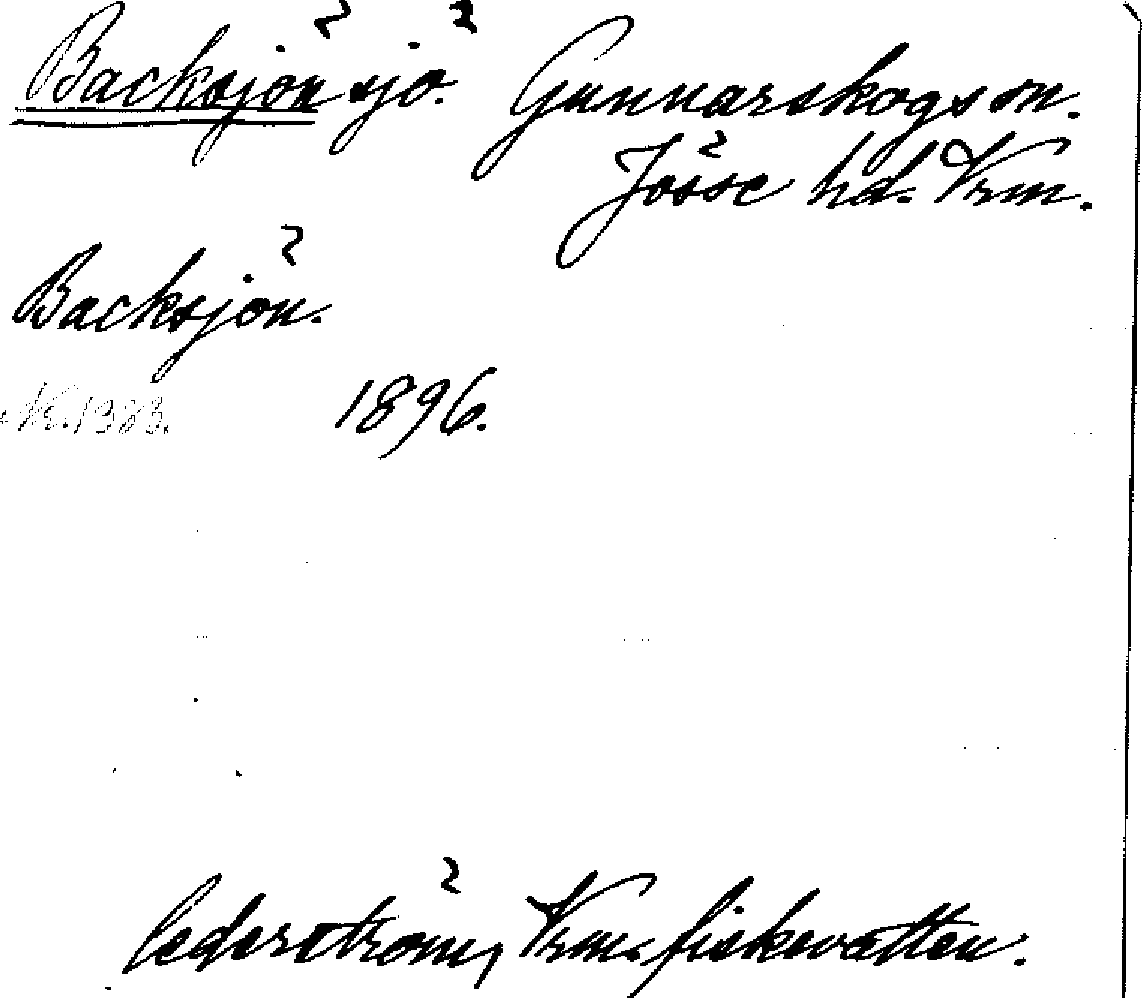 Backsjön sjö. Gunnarskogs sn.
Jösse hd. Vrm.
Backsjön.
1896.
Cederström, Vrm. fiskevatten.